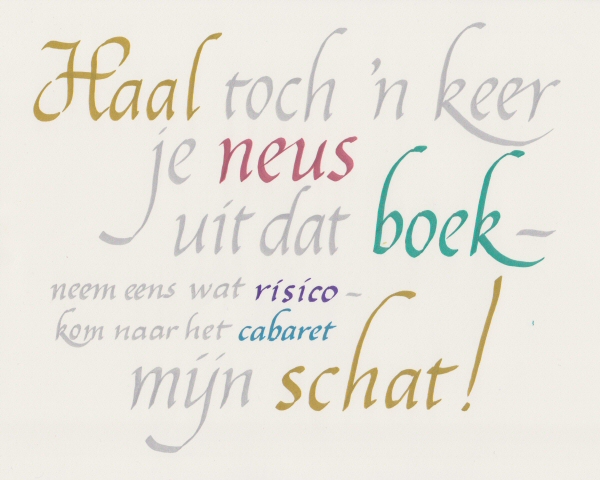 Haal toch 'n keer
je neus
uit dat boek –
neem eens wat risico –
kom naar het cabaret
mijn schat!